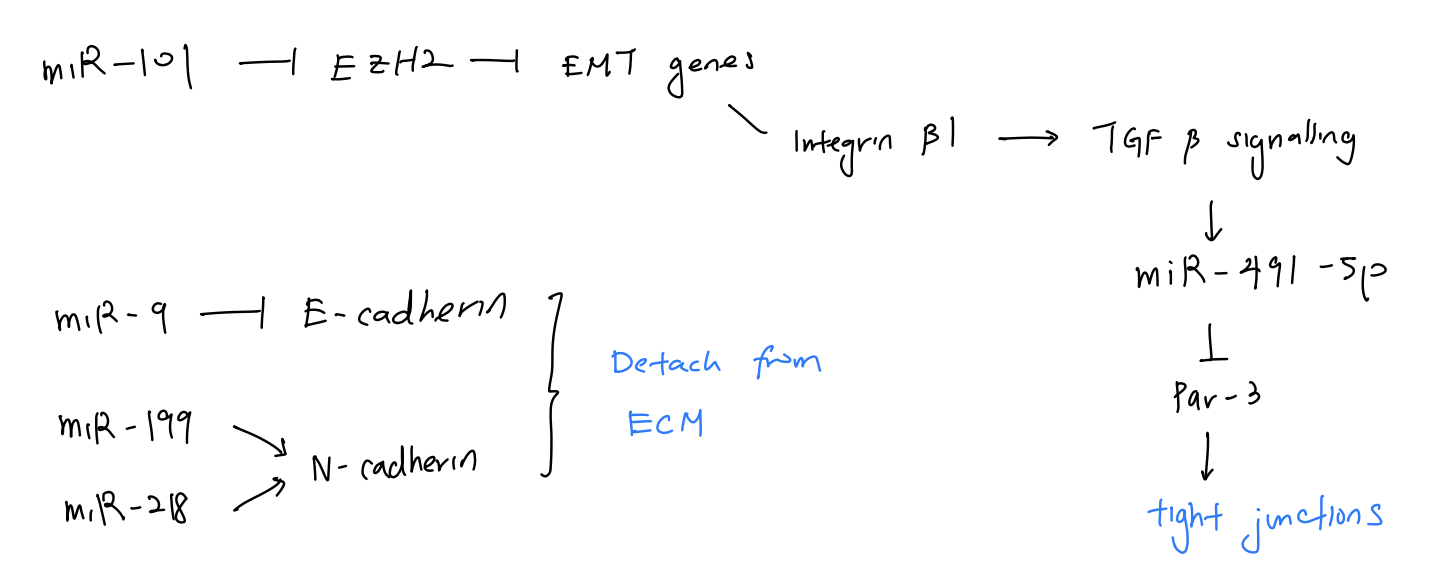 miR-101 ⊣ EZH2 ⊣ EMT genes
Integrin β1 → TGF β signalling
↓
miR-491-5p
⊥
Par-3
↓
tight junctions
miR-9 ⊣ E-cadherin
miR-199
miR-218
N-cadherin
Detach from
ECM